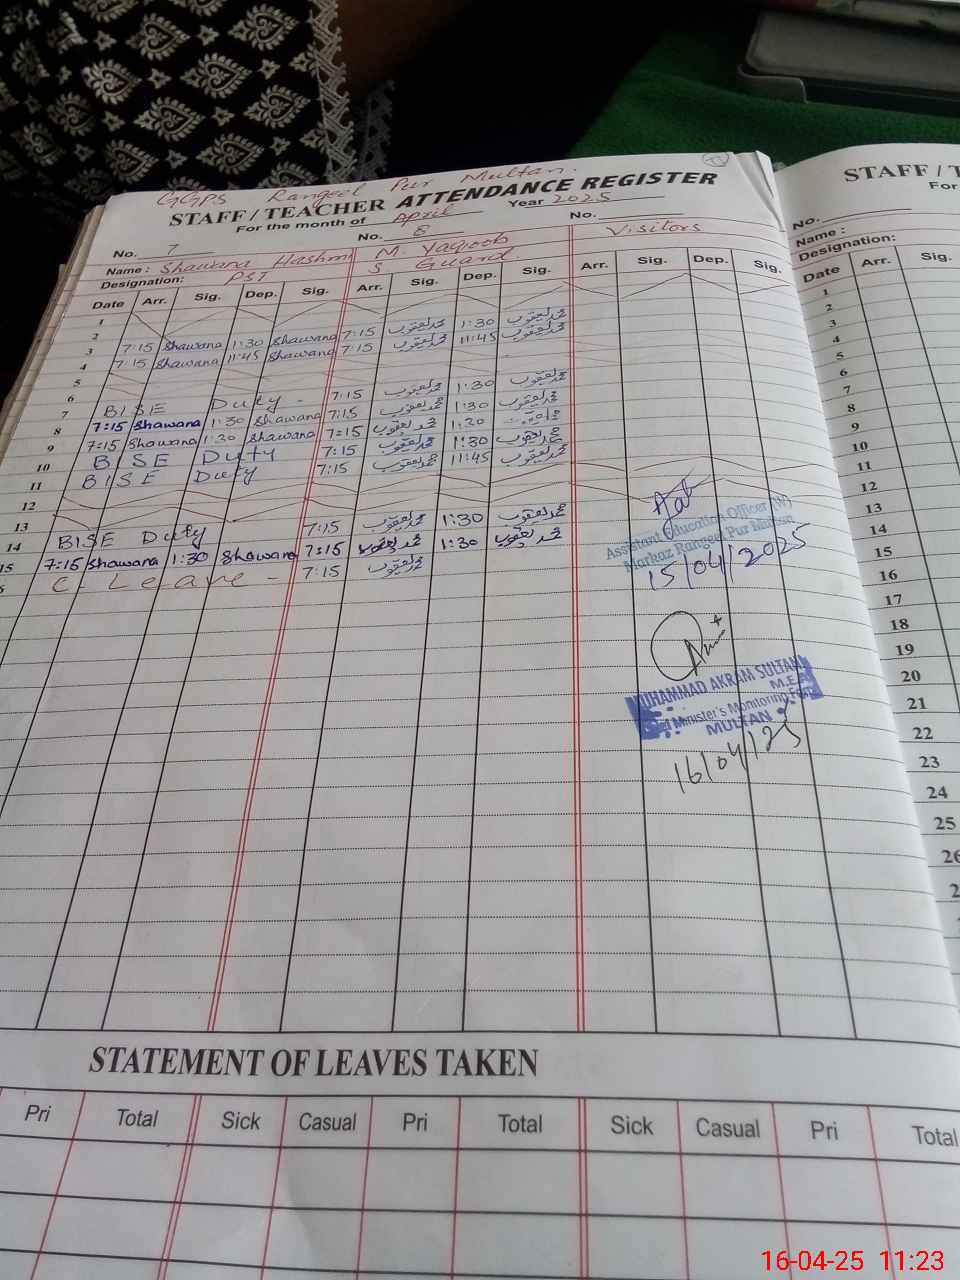 GGPS Rangeel Pur Multan.
STAFF / TEACHER ATTENDANCE REGISTER
For the month of April Year 2025
No. 7 No. 8 No.
Name : Shawana Hashmi M. Yaqoob Visitors
Designation: PST S. Guard
Date Arr. Sig. Dep. Sig. Arr. Sig. Dep. Sig. Arr. Sig. Dep. Sig.
1
2 7:15 Shawana 1:30 Shawana 7:15 محمد یعقوب 1:30 محمد یعقوب
3 7:15 Shawana 11:45 Shawana 7:15 محمد یعقوب 11:45 محمد یعقوب
4
5
6 BISE Duty - 7:15 محمد یعقوب 1:30 محمد یعقوب
7 7:15 Shawana 1:30 Shawana 7:15 محمد یعقوب 1:30 محمد یعقوب
8 7:15 Shawana 1:30 Shawana 7:15 محمد یعقوب 1:30 محمد یعقوب
9 BISE Duty 7:15 محمد یعقوب 1:30 محمد یعقوب
10 BISE Duty 7:15 محمد یعقوب 11:45 محمد یعقوب
11
12
13 BISE Duty 7:15 محمد یعقوب 1:30 محمد یعقوب
14 7:15 Shawana 1:30 Shawana 7:15 محمد یعقوب 1:30 محمد یعقوب
15 C. Leave - 7:15 محمد یعقوب
Assistant Education Officer (W)
Markaz Rangeel Pur Multan
15/04/2025
MUHAMMAD AKRAM SULTAN
M.E.A
Chief Minister's Monitoring Force
MULTAN
16/04/25
STATEMENT OF LEAVES TAKEN
Pri Total Sick Casual Pri Total Sick Casual Pri Total
STAFF / T
For
No.
Name :
Designation:
Date Arr. Sig.
1
2
3
4
5
6
7
8
9
10
11
12
13
14
15
16
17
18
19
20
21
22
23
24
25
26
16-04-25 11:23